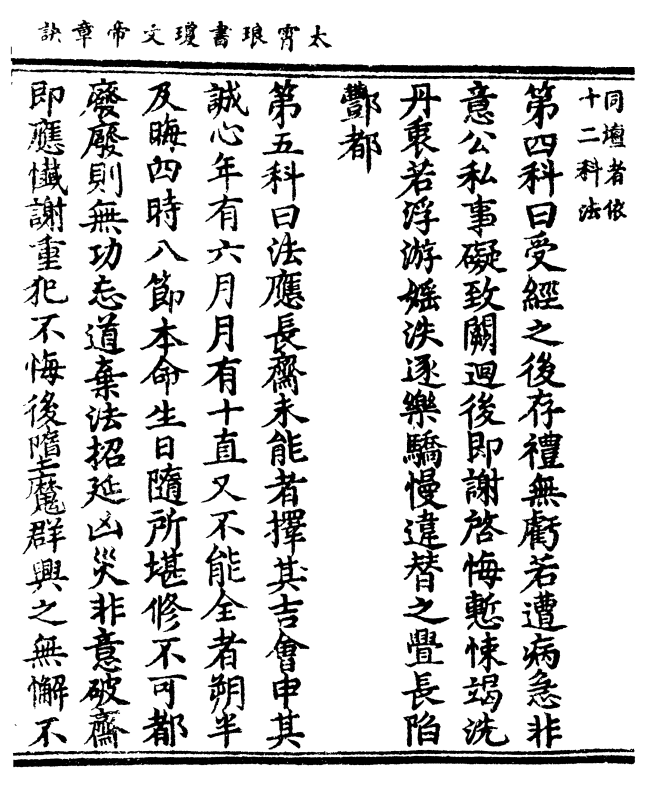 太霄琅書瓊文帝章訣
同壇者依
十二科法
第四科曰受經之後存禮無虧若遭病急非
意公私事礙致闕迴後即謝啓悔慙悚竭洗
丹衷若浮游婬泆逐樂驕慢違替之舋長陷
酆都
第五科曰法應長齋未能者擇其吉會申其
誠心年有六月月有十直又不能全者朔半
及晦四時八節本命生日隨所堪修不可都
廢廢則無功忘道棄法招延凶災非意破齋
即應懴謝重犯不悔後墮魔群興之無懈不